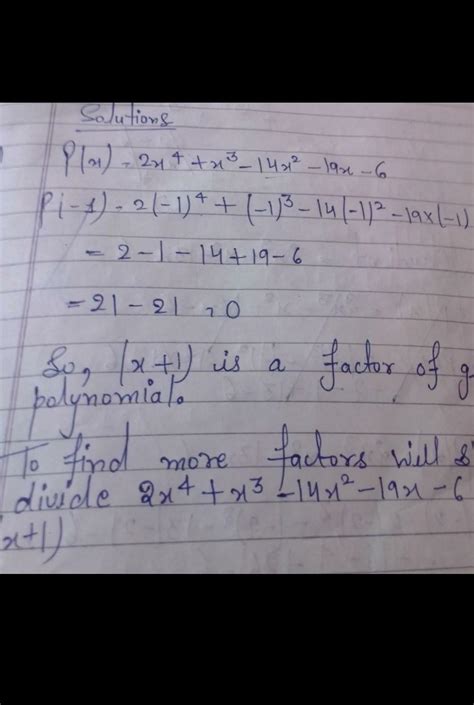 Solutions
P(x) = 2x⁴ + x³ - 14x² - 19x - 6
P(-1) - 2(-1)⁴ + (-1)³ - 14(-1)² - 19x(-1)
= 2 - 1 - 14 + 19 - 6
= 21 - 21 , 0
So, (x+1) is a factor of g
polynomial.
To find more factors will
divide 2x⁴ + x³ - 14x² - 19x - 6
x+1)